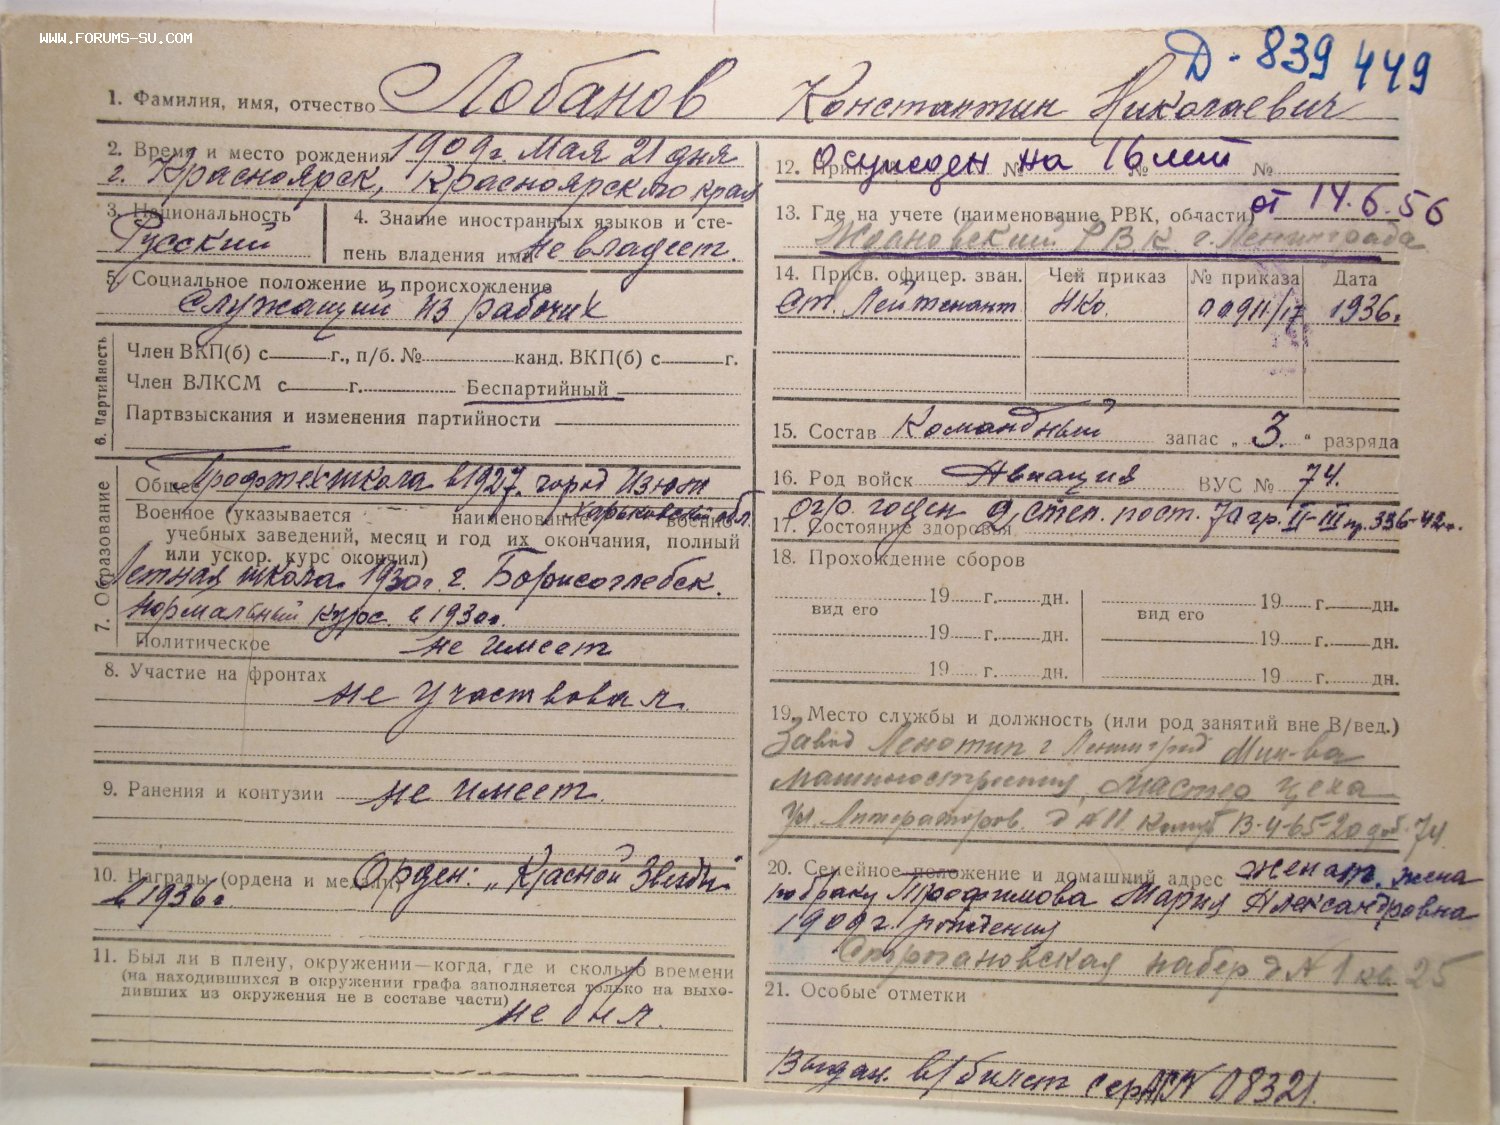 WWW.FORUMS-SU.COM
Д-839449
1. Фамилия, имя, отчество Лобанов Константин Николаевич
2. Время и место рождения 1909 г. Мая 21 дня
г. Красноярск, Красноярского края
3. Национальность
Русский
4. Знание иностранных языков и сте-
пень владения ими Не владеет.
5. Социальное положение и происхождение
Служащий из рабочих
6. Партийность
Член ВКП(б) с г., п/б. № канд. ВКП(б) с г.
Член ВЛКСМ с г. Беспартийный
Партвзыскания и изменения партийности
7. Образование
Общее Профтехшкола в 1927. город Изюм
Харьковской обл.
Военное (указывается наименование военно-
учебных заведений, месяц и год их окончания, полный
или ускор. курс окончил)
Летная школа 1930 г. г. Борисоглебск.
нормальный курс в 1930 г.
Политическое не имеет
8. Участие на фронтах
не участвовал.
9. Ранения и контузии не имеет.
10. Награды (ордена и медали) Орден: „Красной Звезды"
в 1936 г.
11. Был ли в плену, окружении—когда, где и сколько времени
(на находившихся в окружении графа заполняется только на выхо-
дивших из окружения не в составе части)
не был.
12. Осужден на 16 лет
№ № №
от 14.6.56
13. Где на учете (наименование РВК, области)
Ждановский РВК г. Ленинграда
14. Присв. офицер. зван. Чей приказ № приказа Дата
Ст. Лейтенант НКО. 00911/17 1936 г.
15. Состав Командный запас „ 3. " разряда
16. Род войск Авиация ВУС № 74.
огр. годен 2 степ. пост. 7а гр. II-III пр. 336-42 г.
17. Состояние здоровья
18. Прохождение сборов
19 г. дн. 19 г. дн.
вид его вид его
19 г. дн. 19 г. дн.
19 г. дн. 19 г. дн.
19. Место службы и должность (или род занятий вне В/вед.)
Завод Ленотип г. Ленинград Мин-ва
машиностроения, мастер цеха
ул. Литераторов. д №11. В-4-65-20 доб. 74
20. Семейное положение и домашний адрес Женат. жена
по браку Трофимова Мария Александровна
1909 г. рождения
Строгановская набер д № 1 кв. 25
21. Особые отметки
Выдан в/билет сер № 08321.